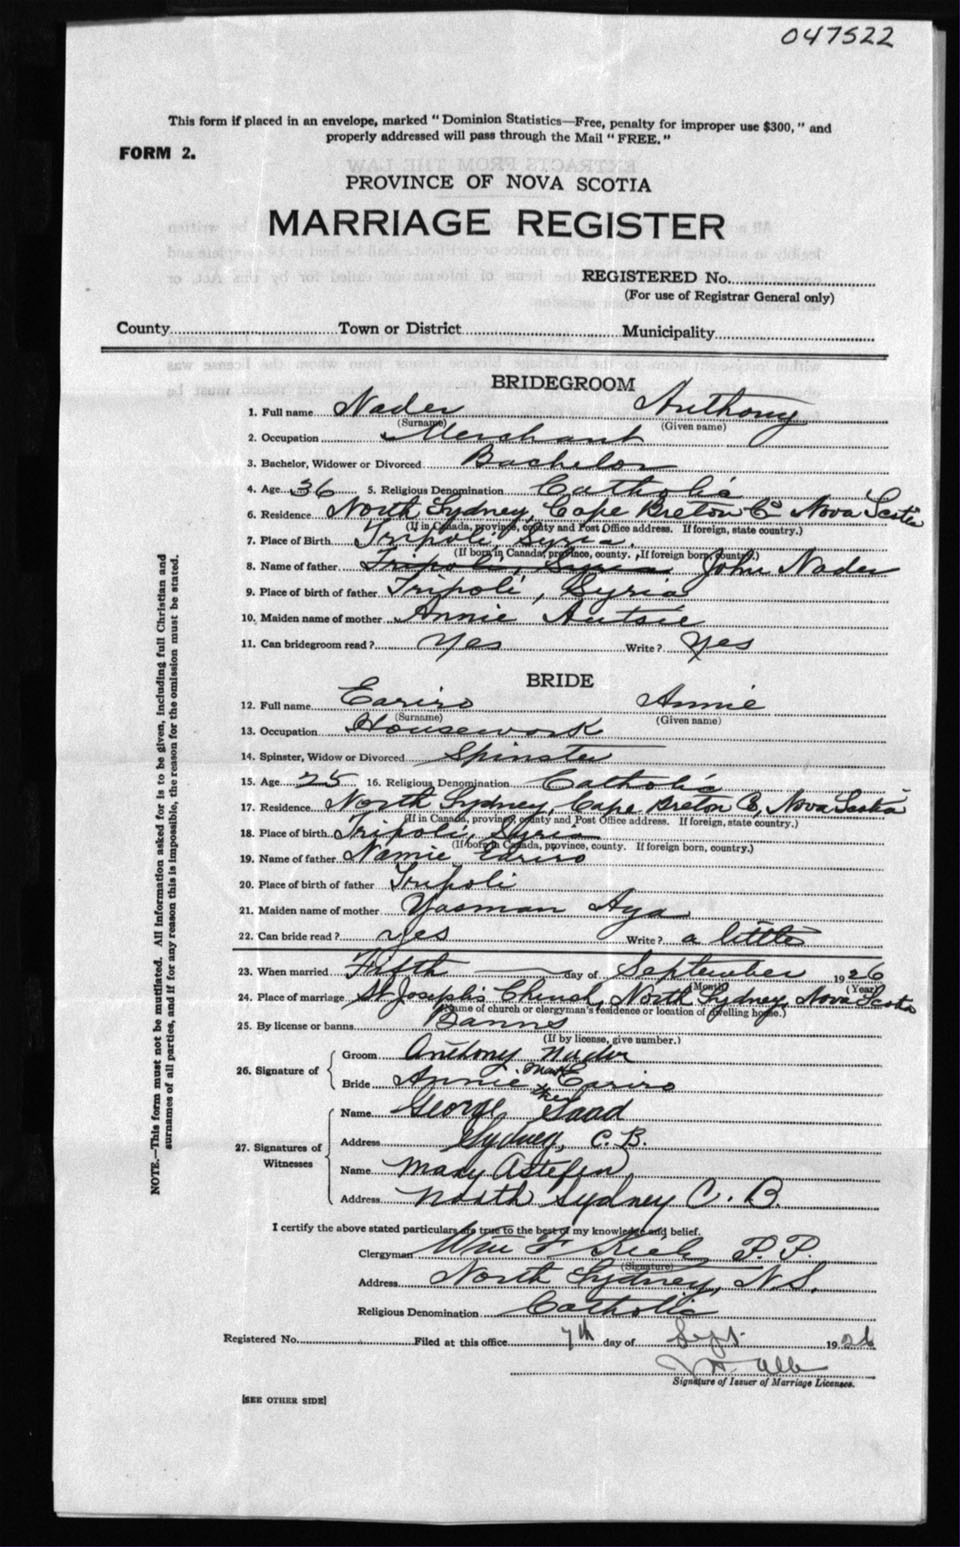 047522
This form if placed in an envelope, marked "Dominion Statistics—Free, penalty for improper use $300," and
properly addressed will pass through the Mail "FREE."
FORM 2.
PROVINCE OF NOVA SCOTIA
MARRIAGE REGISTER
REGISTERED No.
(For use of Registrar General only)
County Town or District Municipality
BRIDEGROOM
1. Full name Nader Anthony
(Surname) (Given name)
2. Occupation Merchant
3. Bachelor, Widower or Divorced Bachelor
4. Age 36 5. Religious Denomination Catholic
6. Residence North Sydney, Cape Breton Co Nova Scotia
(If in Canada, province, county and Post Office address. If foreign, state country.)
7. Place of Birth Tripoli, Syria.
(If born in Canada, province, county. If foreign born, country.)
8. Name of father Tripoli, Syria John Nader
9. Place of birth of father Tripoli, Syria
10. Maiden name of mother Annie
11. Can bridegroom read? Yes Write? Yes
BRIDE
12. Full name Eariro Annie
(Surname) (Given name)
13. Occupation Housework
14. Spinster, Widow or Divorced Spinster
15. Age 25 16. Religious Denomination Catholic
17. Residence North Sydney, Cape Breton Co, Nova Scotia
(If in Canada, province, county and Post Office address. If foreign, state country.)
18. Place of birth Tripoli, Syria
(If born in Canada, province, county. If foreign born, country.)
19. Name of father Namie
20. Place of birth of father Tripoli
21. Maiden name of mother Yasman Aya
22. Can bride read? Yes Write? a little
23. When married Fifth day of September 1926
(Month) (Year)
24. Place of marriage St. Joseph's Church, North Sydney, Nova Scotia
(Name of church or clergyman's residence or location of dwelling house.)
25. By license or banns Banns
(If by license, give number.)
26. Signature of
Groom Anthony Nader
Bride Annie Eariro
her mark
27. Signatures of Witnesses
Name George Saad
Address Sydney, C. B.
Name Mary Astefen
Address North Sydney C. B.
I certify the above stated particulars are true to the best of my knowledge and belief.
Clergyman Wm F P. P.
(Signature)
Address North Sydney, N.S.
Religious Denomination Catholic
Registered No. Filed at this office 7th day of Sept. 1926
Signature of Issuer of Marriage Licenses.
[SEE OTHER SIDE]
NOTE.—This form must not be mutilated. All information asked for is to be given, including full Christian and
surnames of all parties, and if for any reason this is impossible, the reason for the omission must be stated.